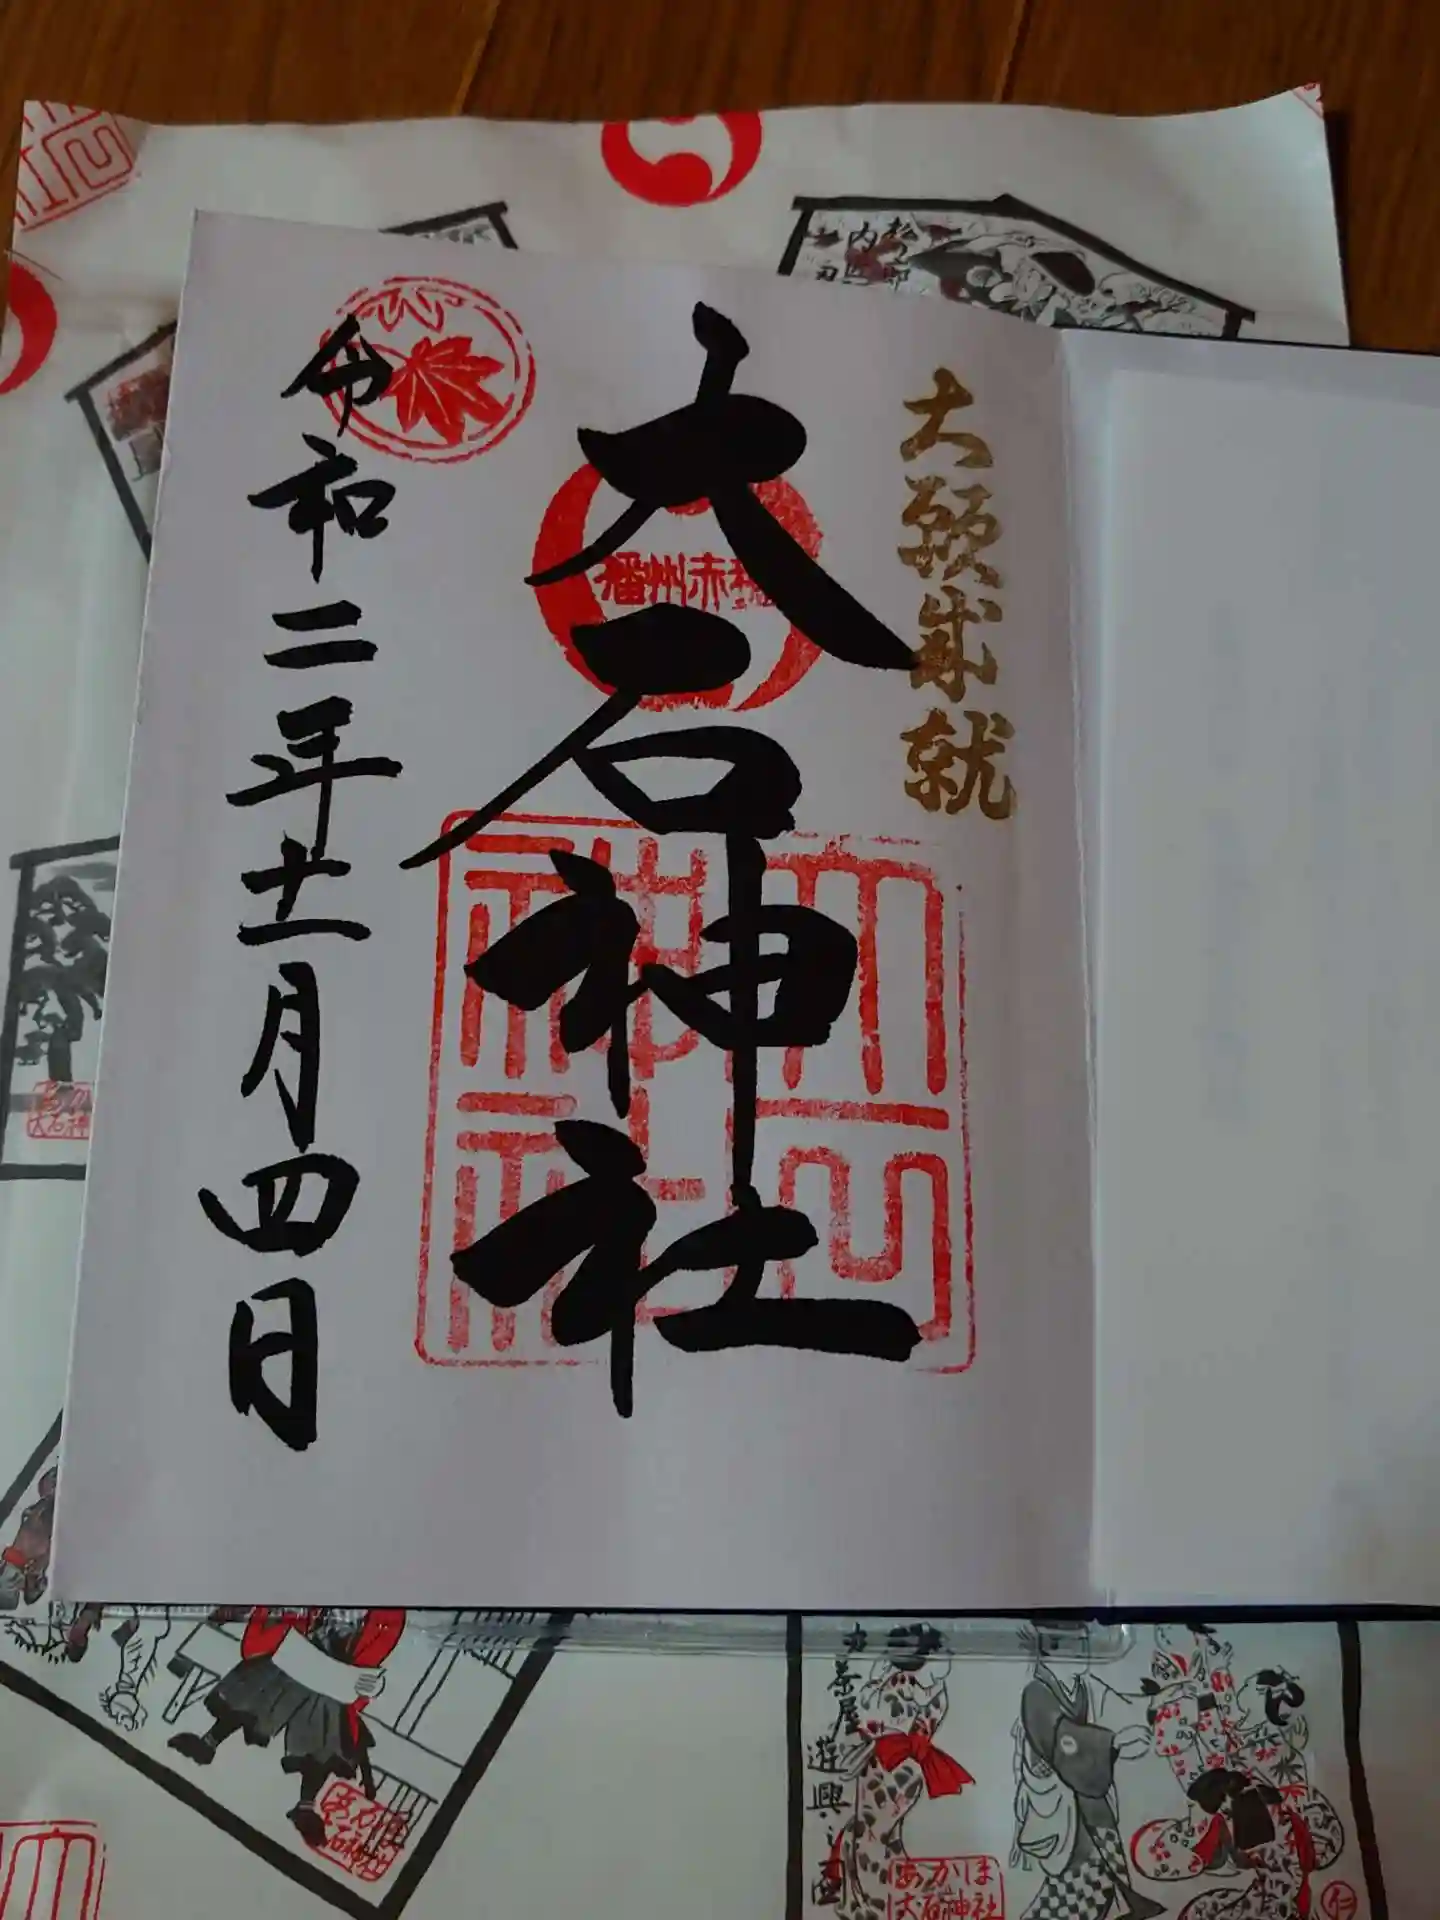 大願成就
大石神社
播州赤穂
大石神社
令和二年十一月四日
茶屋遊興之図
あかほ
大石神社